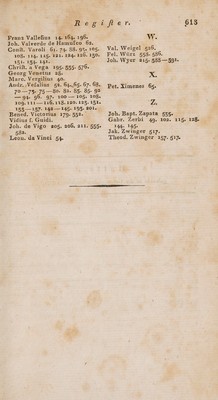 Register. 613
Franz Vallesius 14. 184. 196.
Joh. Valverde de Hamusco 62.
Const. Varoli 61. 74. 88. 91. 105.
105. 114. 115. 121. 124. 126. 150.
151. 154. 141.
Christ. a Vega 105. 555. 576.
Georg Venetus 25.
Marc. Vergilius 40.
Andr. Vesalius 51. 64. 65. 67. 68.
70—73. 75—80. 82. 83. 85-92
—94. 96. 97. 100—105. 109.
109. 111—116. 118. 120. 125. 151.
155—157. 142—145. 193. 201.
Bened. Victorius 179. 551.
Vidius f. Guidi.
Joh. de Vigo 205. 206. 211. 555.
582.
Leon. da Vinci 54.
W.
Val. Weigel 526.
Fel. Würz 552. 586.
Joh. Wyer 215. 588—591.
X.
Pet. Ximenes 65.
Z.
Joh. Bapt. Zapata 555.
Gabr. Zerbi 49. 102. 115. 128.
144. 145.
Jak. Zwinger 517.
Theod. Zwinger 157. 517.